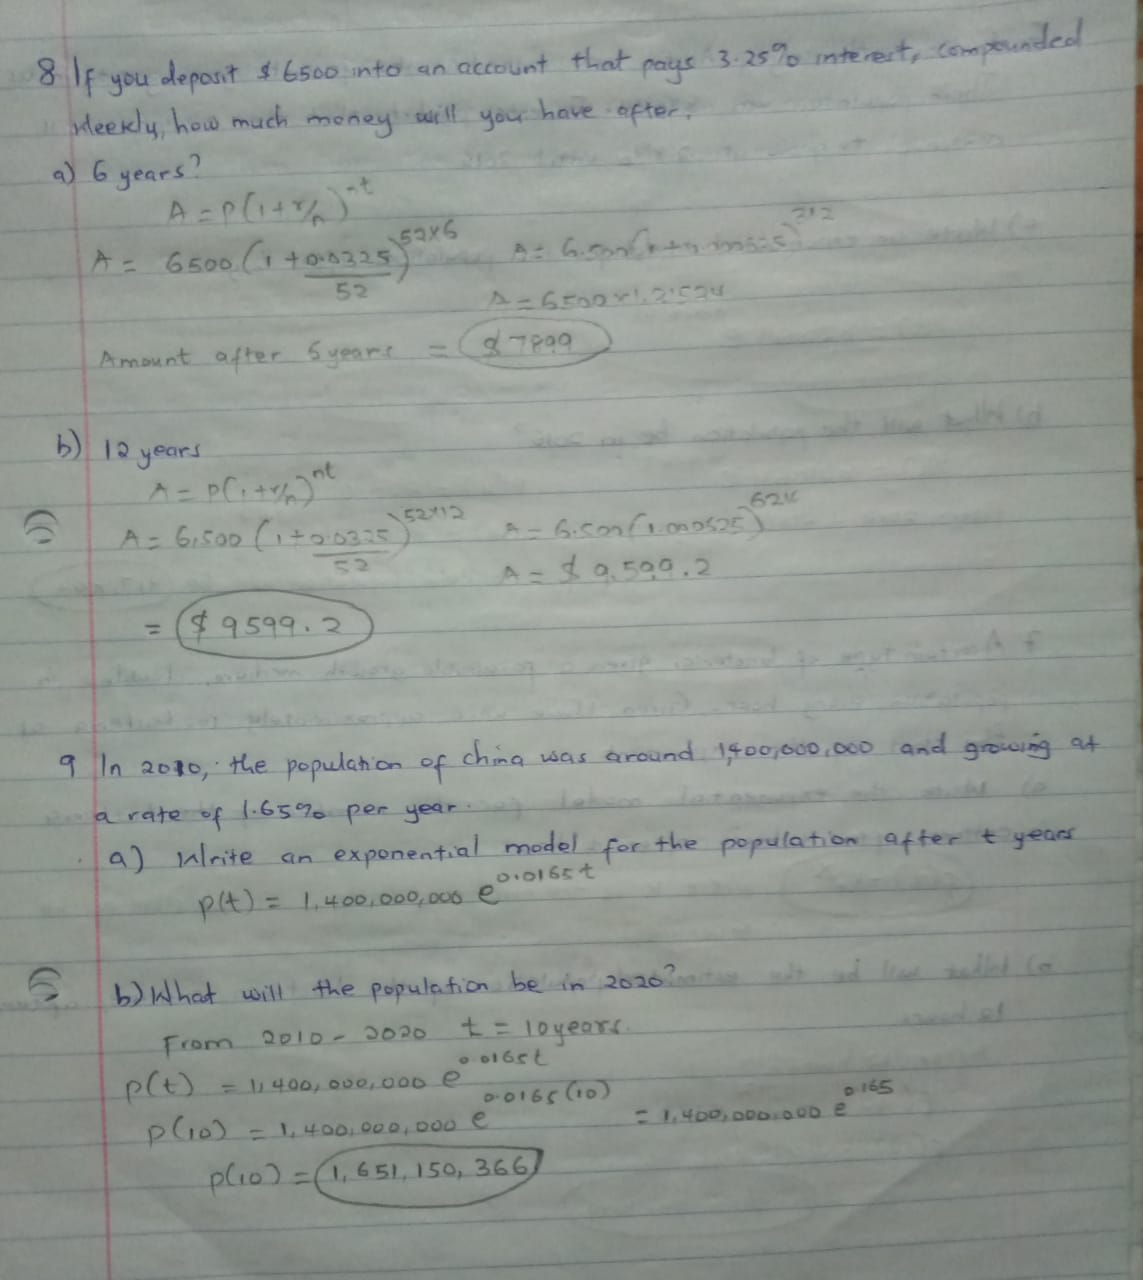 8 If you deposit $ 6500 into an account that pays 3.25% interest, compounded
Weekly, how much money will you have after.
a) 6 years?
A = P(1+r/n)^nt
A = 6500 (1 + 0.0325/52)^52x6
A = 6500 x 1.2
Amount after years = $ 7899
b) 12 years
A = P(1+r/n)^nt
A = 6,500 (1 + 0.0325/52)^52x12 A = 6.500(1.000625)^624
A = $ 9,599.2
= $ 9599.2
9 In 2010, the population of china was around 1,400,000,000 and growing at
a rate of 1.65% per year.
a) Write an exponential model for the population after t years
p(t) = 1,400,000,000 e^0.0165t
b) What will the population be in 2020?
From 2010 - 2020 t = 10years.
p(t) = 1,400,000,000 e^0.0165t
p(10) = 1,400,000,000 e^0.0165(10) = 1,400,000,000 e^0.165
p(10) = 1,651,150,366